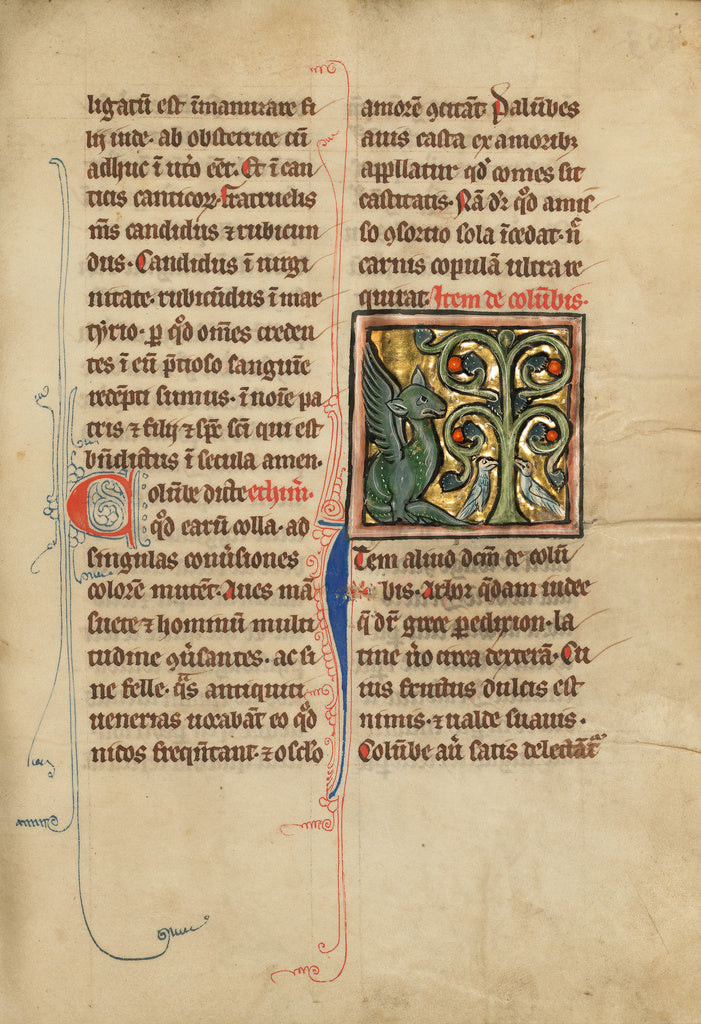 ligatū est ī manu zare fi
lii iude. ab obstetrice cū
adhuc ī utͦo eēt. Et ī can
ticis canticoꝝ. Fratruelis
mīs candidus ⁊ rubicun
dus. Candidus ī uirgi
nitate. rubicūdus ī mar
tyrio. ꝑ qđ om̄es creden
tes ī eū p̄tioso sanguīe
redēpti sumus. ī noīe pa
tris ⁊ filij ⁊ sp̄c sc̄i qui est
bn̄dictus ī secula amen.
Colūbe dicte ethim̄.
qđ earū colla. ad
singulas conūsiones
colorē mutēt. Aues mā
suete ⁊ hominū multi
tudine ꝯūsantes. ac si
ne felle. qͣs antiqui
uenerias uocabāt eo qđ
nidos freqn̄tant. ⁊ osclo
amorē ꝯcitāt. Palūbes
auis casta ex amoribꝫ
appellatur qđ comes sit
castitatis. Nā dr̄ qđ amis
so ꝯsortio sola īcedat. n̄
carnis copulā ultra re
quirat. Item de colūbis.
Item aliud dcm̄ de colū
bis. Arbor qđam indee
q̄ dr̄ grece ꝑedixion. la
tine uͦo circa dexterā. Cu
ius fructus dulcis est
nimis. ⁊ ualde suauis.
Colūbe aū satis delectātͬ